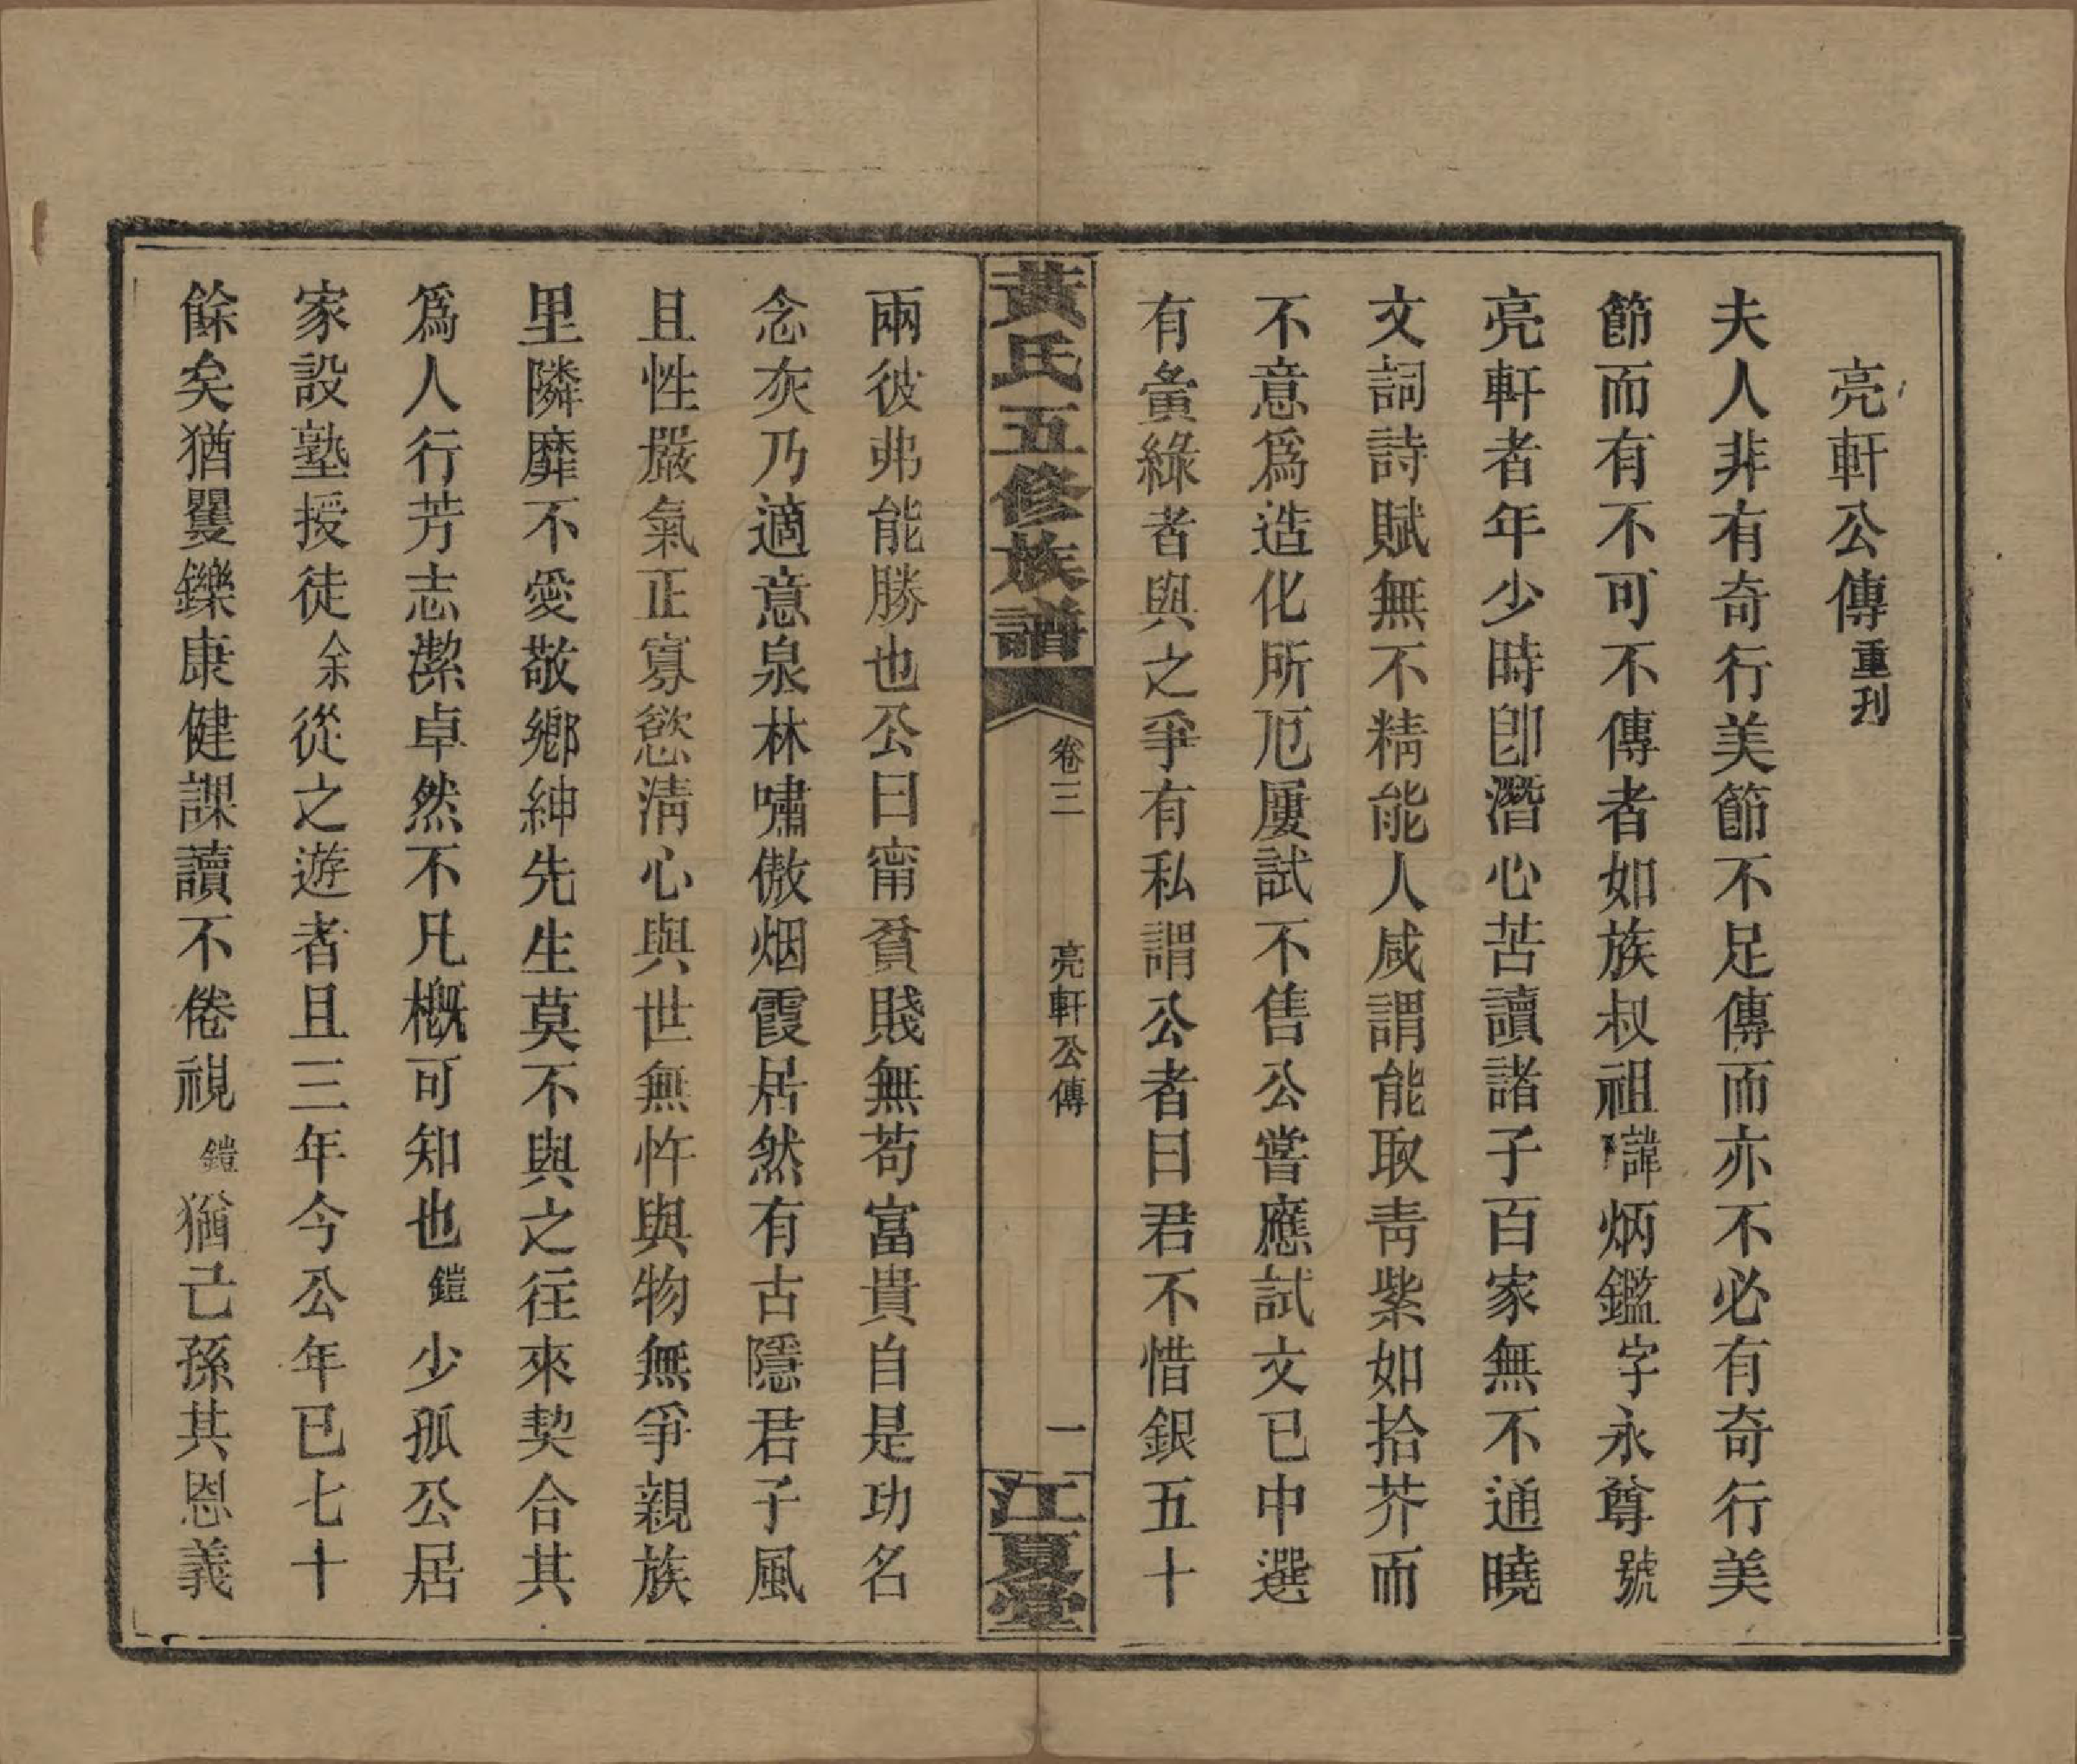 亮軒公傳重刋
夫人非有奇行美節不足傳而亦不必有奇行美
節而有不可不傳者如族叔祖諱炳鑑字永尊號
亮軒者年少時卽潛心苦讀諸子百家無不通曉
文詞詩賦無不精能人咸謂能取靑紫如拾芥而
不意爲造化所厄屢試不售公嘗應試文已中選
有夤緣者與之爭有私謂公者曰君不惜銀五十
黃氏五修族譜
卷三
亮軒公傳
一
江夏堂
兩彼弗能勝也公曰甯貧賤無苟富貴自是功名
念灰乃適意泉林嘯傲烟霞居然有古隱君子風
且性嚴氣正寡慾淸心與世無忤與物無爭親族
里隣靡不愛敬鄉紳先生莫不與之往來契合其
爲人行芳志潔卓然不凡槪可知也鎧少孤公居
家設塾授徒余從之遊者且三年今公年已七十
餘矣猶矍鑠康健課讀不倦視鎧猶己孫其恩義